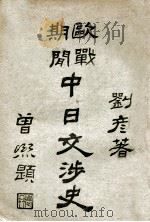 劉彥著
歐戰
期間
中日交涉史
曾熙題